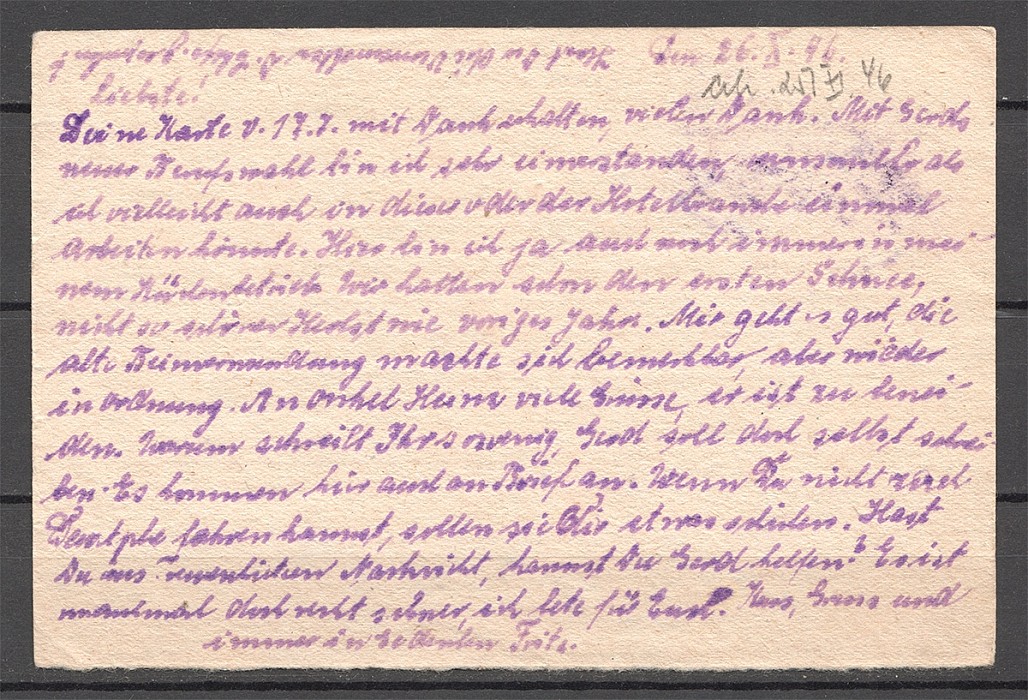 Den 26.X.46.
erh. 25/XI 46
Liebste!
Deine Karte v. 17.7. mit Dank erhalten, vielen Dank. Mit Gerds
neuer Berufswahl bin ich sehr einverstanden, umsomehr als
ich vielleicht auch in dieser oder der Hotelbranche einmal
arbeiten könnte. Hier bin ich ja auch noch immer in mei-
nem Küchenbetrieb. Wir hatten schon den ersten Schnee,
nicht so schöner Herbst wie voriges Jahr. Mir geht es gut, die
alte Beinverwundung machte sich bemerkbar, aber wieder
in Ordnung. An Onkel Heinz viele Grüsse, er ist zu benei-
den. Warum schreibt Ihr so wenig, Gerd soll doch selbst schrei-
ben. Es kommen hier auch an Brief an. Wenn Du nicht nach
fahren kannst, sollen sie Dir etwas schicken. Hast
Du aus Nachricht, kannst Du Gerd helfen? Es ist
manchmal doch recht schwer, ich bete für Euch. Kuss, Gruss und
immer in Gedenken Fritz.